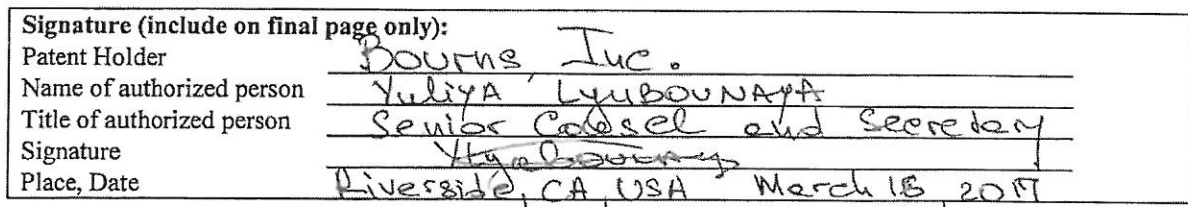 Signature (include on final page only):
Patent Holder Bourns, Inc.
Name of authorized person YuliyA LyuBOVNAyA
Title of authorized person Senior Counsel and Secretary
Signature
Place, Date Riverside, CA, USA March 2017